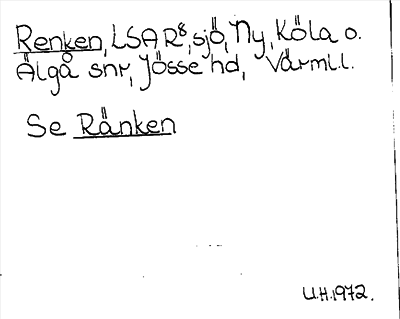 Renken, LSA R⁸, sjö, Ny, Köla o.
Älgå snr, Jösse hd, Värml.l.
Se Ränken
U.H.1972.